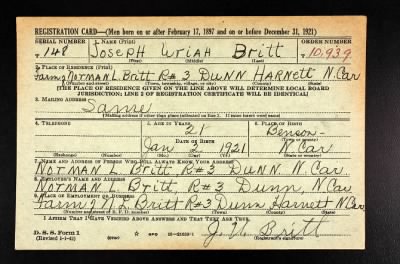 REGISTRATION CARD—(Men born on or after February 17, 1897 and on or before December 31, 1921)
SERIAL NUMBER 1. NAME (Print) ORDER NUMBER
T 148 Joseph Uriah Britt T 10,939
(First) (Middle) (Last)
2. PLACE OF RESIDENCE (Print)
Farm of Norman L. Britt R#3 Dunn Harnett N. Car
(THE PLACE OF RESIDENCE GIVEN ON THE LINE ABOVE WILL DETERMINE LOCAL BOARD
JURISDICTION; LINE 2 OF REGISTRATION CERTIFICATE WILL BE IDENTICAL)
3. MAILING ADDRESS
Same
(Mailing address if other than place indicated on line 2. If same insert word same)
4. TELEPHONE 5. AGE IN YEARS 6. PLACE OF BIRTH
21 Benson
DATE OF BIRTH (Town or county)
Jan 2 1921 N Car
(Exchange) (Number) (Mo.) (Day) (Yr.) (State or country)
7. NAME AND ADDRESS OF PERSON WHO WILL ALWAYS KNOW YOUR ADDRESS
Norman L. Britt, R#3 Dunn, N. Car
8. EMPLOYER'S NAME AND ADDRESS
Norman L. Britt, R#3 Dunn, N. Car
9. PLACE OF EMPLOYMENT OR BUSINESS
Farm of N. L. Britt R#3 Dunn Harnett N. Car
(Number and street or R. F. D. number) (Town) (County) (State)
I AFFIRM THAT I HAVE VERIFIED ABOVE ANSWERS AND THAT THEY ARE TRUE.
D. S. S. Form 1 J. U. Britt
(Revised 1-1-42) (over) GPO 16—21630-1 (Registrant's signature)